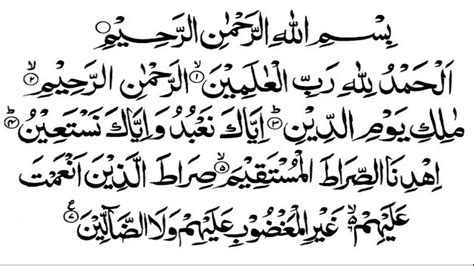 بِسْمِ اللهِ الرَّحْمٰنِ الرَّحِيْمِ
اَلْحَمْدُ لِلّٰهِ رَبِّ الْعٰلَمِيْنَ ۙ﴿۱﴾ الرَّحْمٰنِ الرَّحِيْمِ ۙ﴿۲﴾
مٰلِكِ يَوْمِ الدِّيْنِ ؕ﴿۳﴾ اِيَّاكَ نَعْبُدُ وَاِيَّاكَ نَسْتَعِيْنُ ؕ﴿۴﴾
اِهْدِنَا الصِّرَاطَ الْمُسْتَقِيْمَ ۙ﴿۵﴾ صِرَاطَ الَّذِيْنَ اَنْعَمْتَ
عَلَيْهِمْ ۙ﴿۶﴾ غَيْرِ الْمَغْضُوْبِ عَلَيْهِمْ وَلَا الضَّآلِّيْنَ ﴿۷﴾ ع